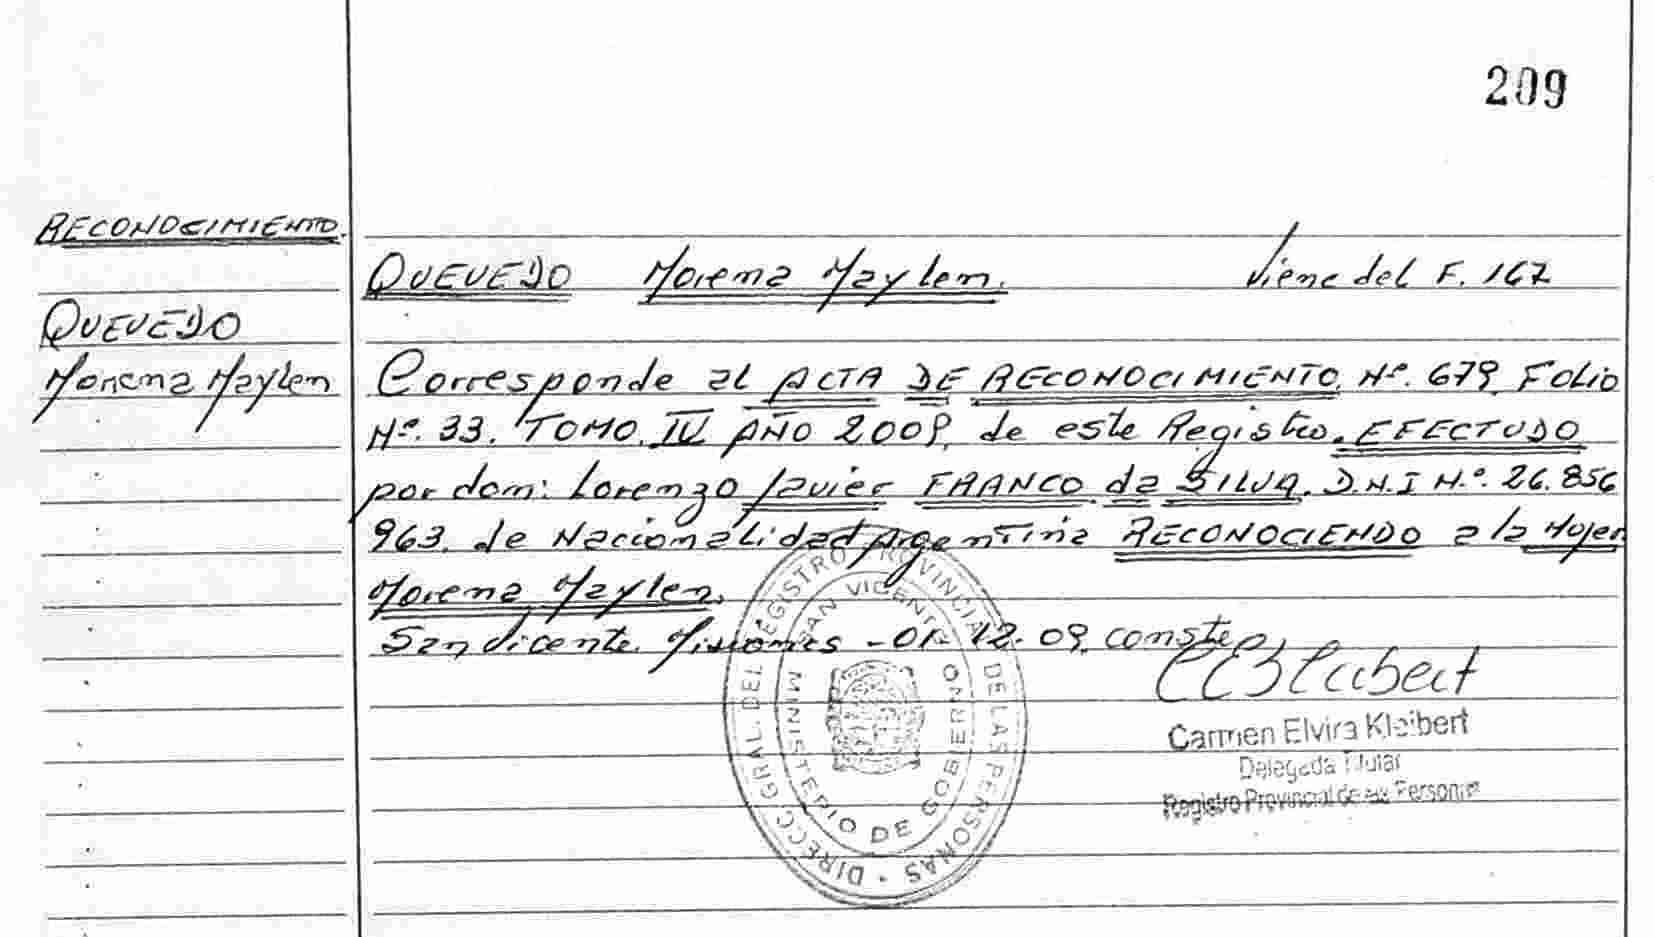 209
RECONOCIMIENTO.
QUEVEDO
Morena Maylen
QUEVEDO Morena Maylen. Viene del F. 167
Corresponde al ACTA DE RECONOCIMIENTO. Nº. 679, FOLIO
Nº. 33. TOMO. IV AÑO 2009, de este Registro. EFECTUDO
por don: Lorenzo Javier FRANCO da SILVA. D.N.I Nº. 26.856
963. de Nacionalidad Argentina RECONOCIENDO a la Mujer
Morena Maylen.
San Vicente. Misiones - 01. 12. 09. conste
Carmen Elvira Kleibert
Delegada Titular
Registro Provincial de las Personas
DIRECC. GRAL. DEL REGISTRO PROVINCIAL DE LAS PERSONAS
SAN VICENTE
MINISTERIO DE GOBIERNO